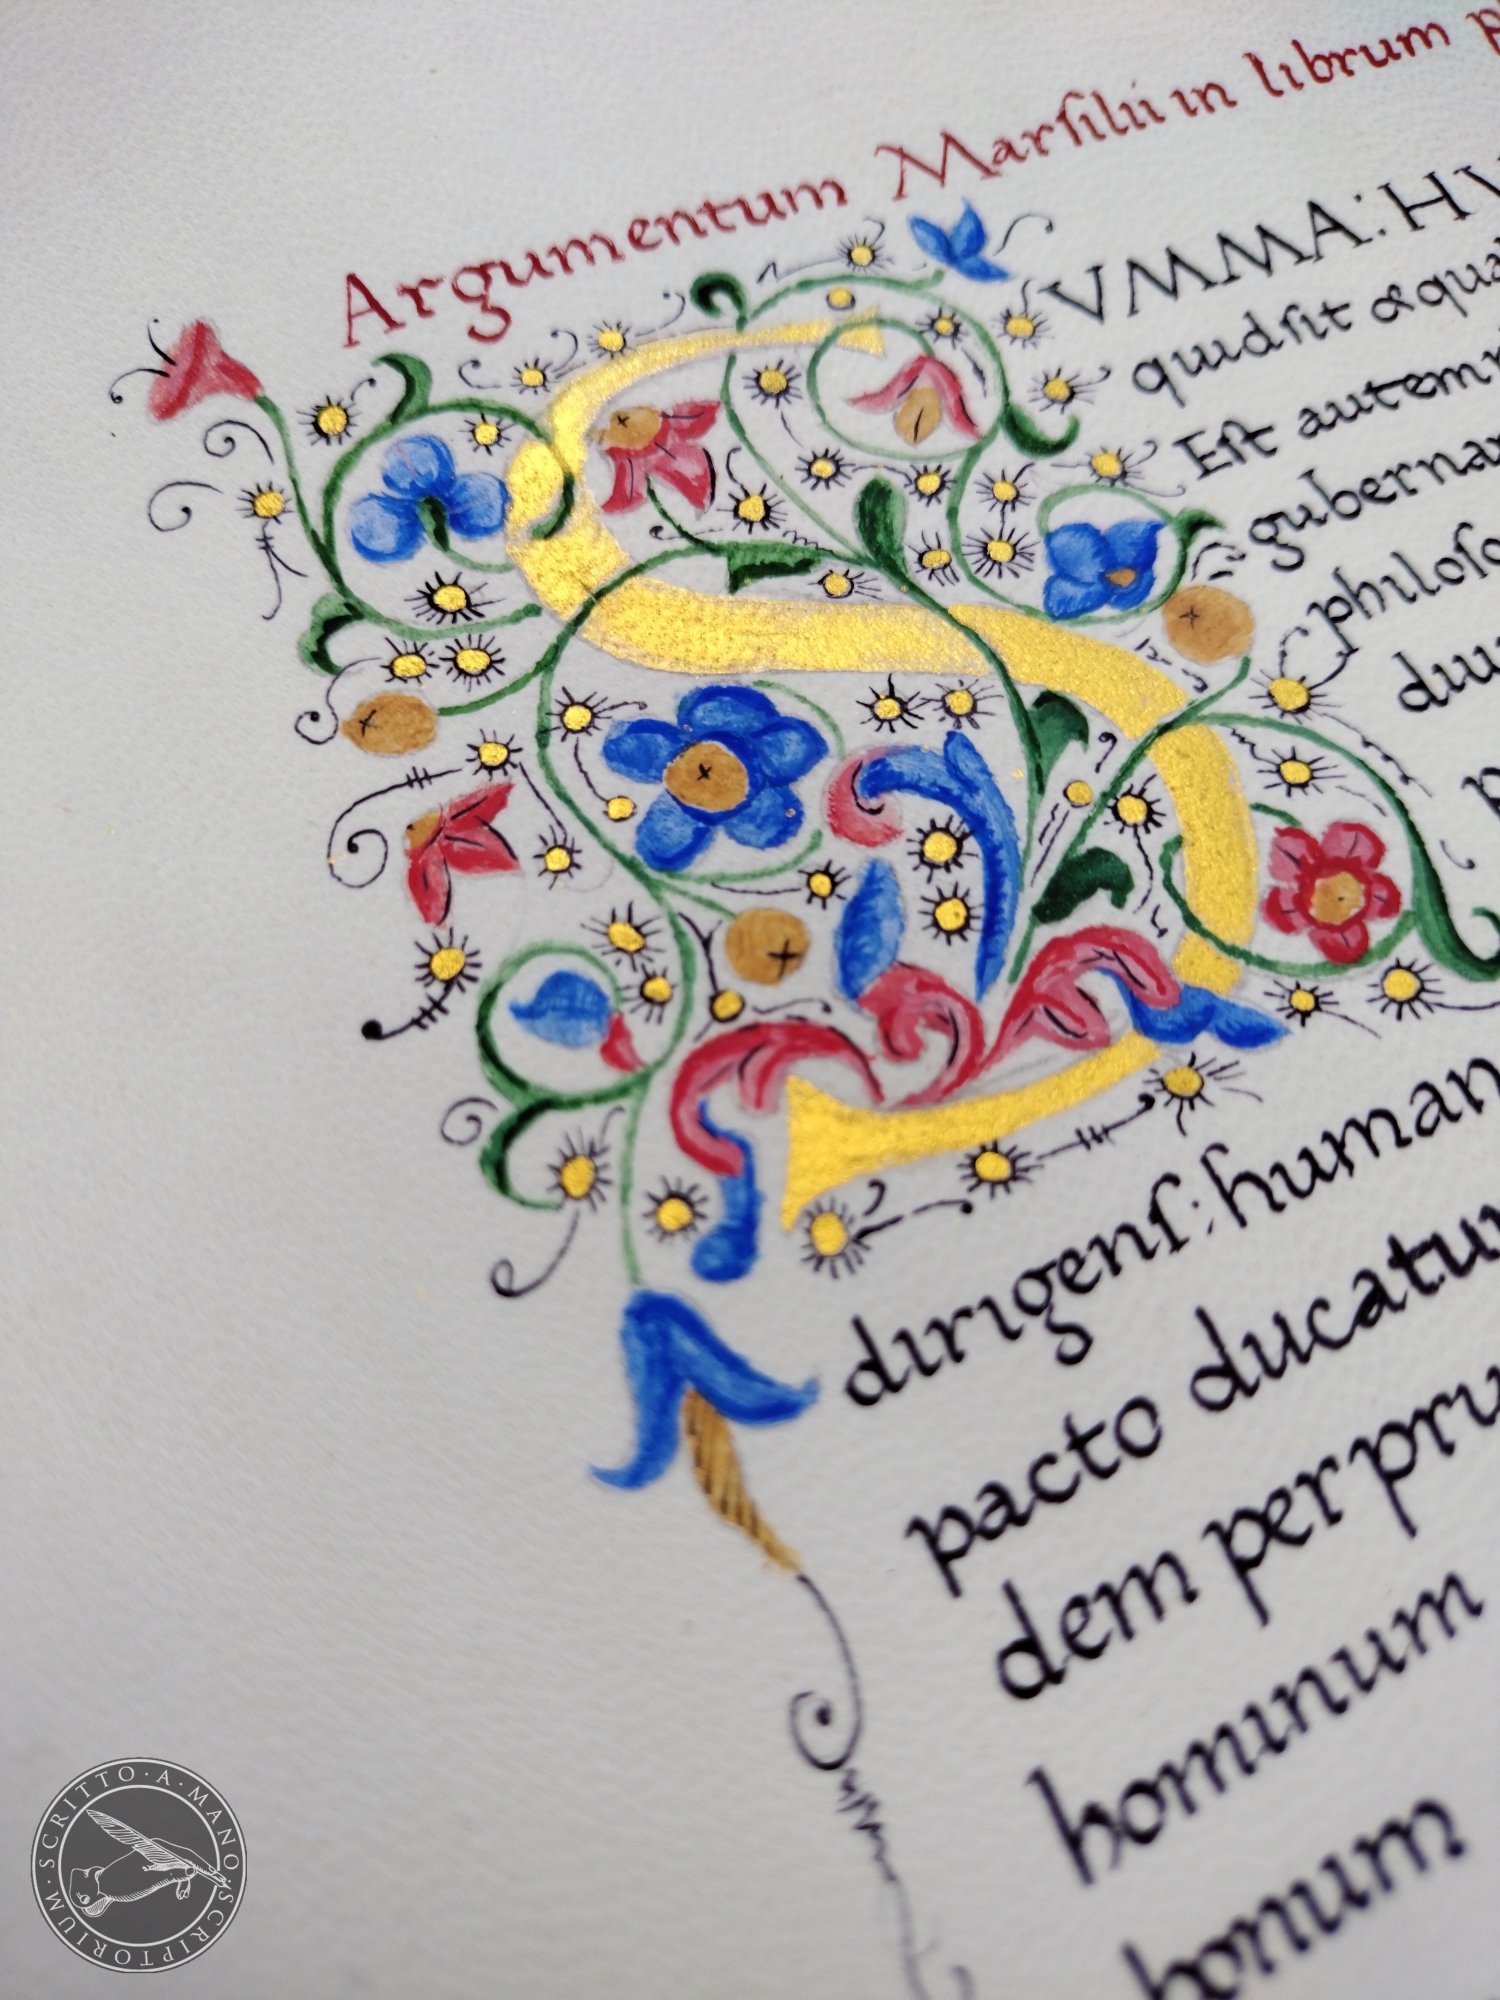 Argumentum Marſilii in librum
SVMMA: HV
quid ſit & qua
Eſt autem
gubernan
philoſo
dirigenſ: human
pacto ducatu
dem per pru
hominum
bonum
·SCRITTO·A·MANO·SCRIPTORIUM